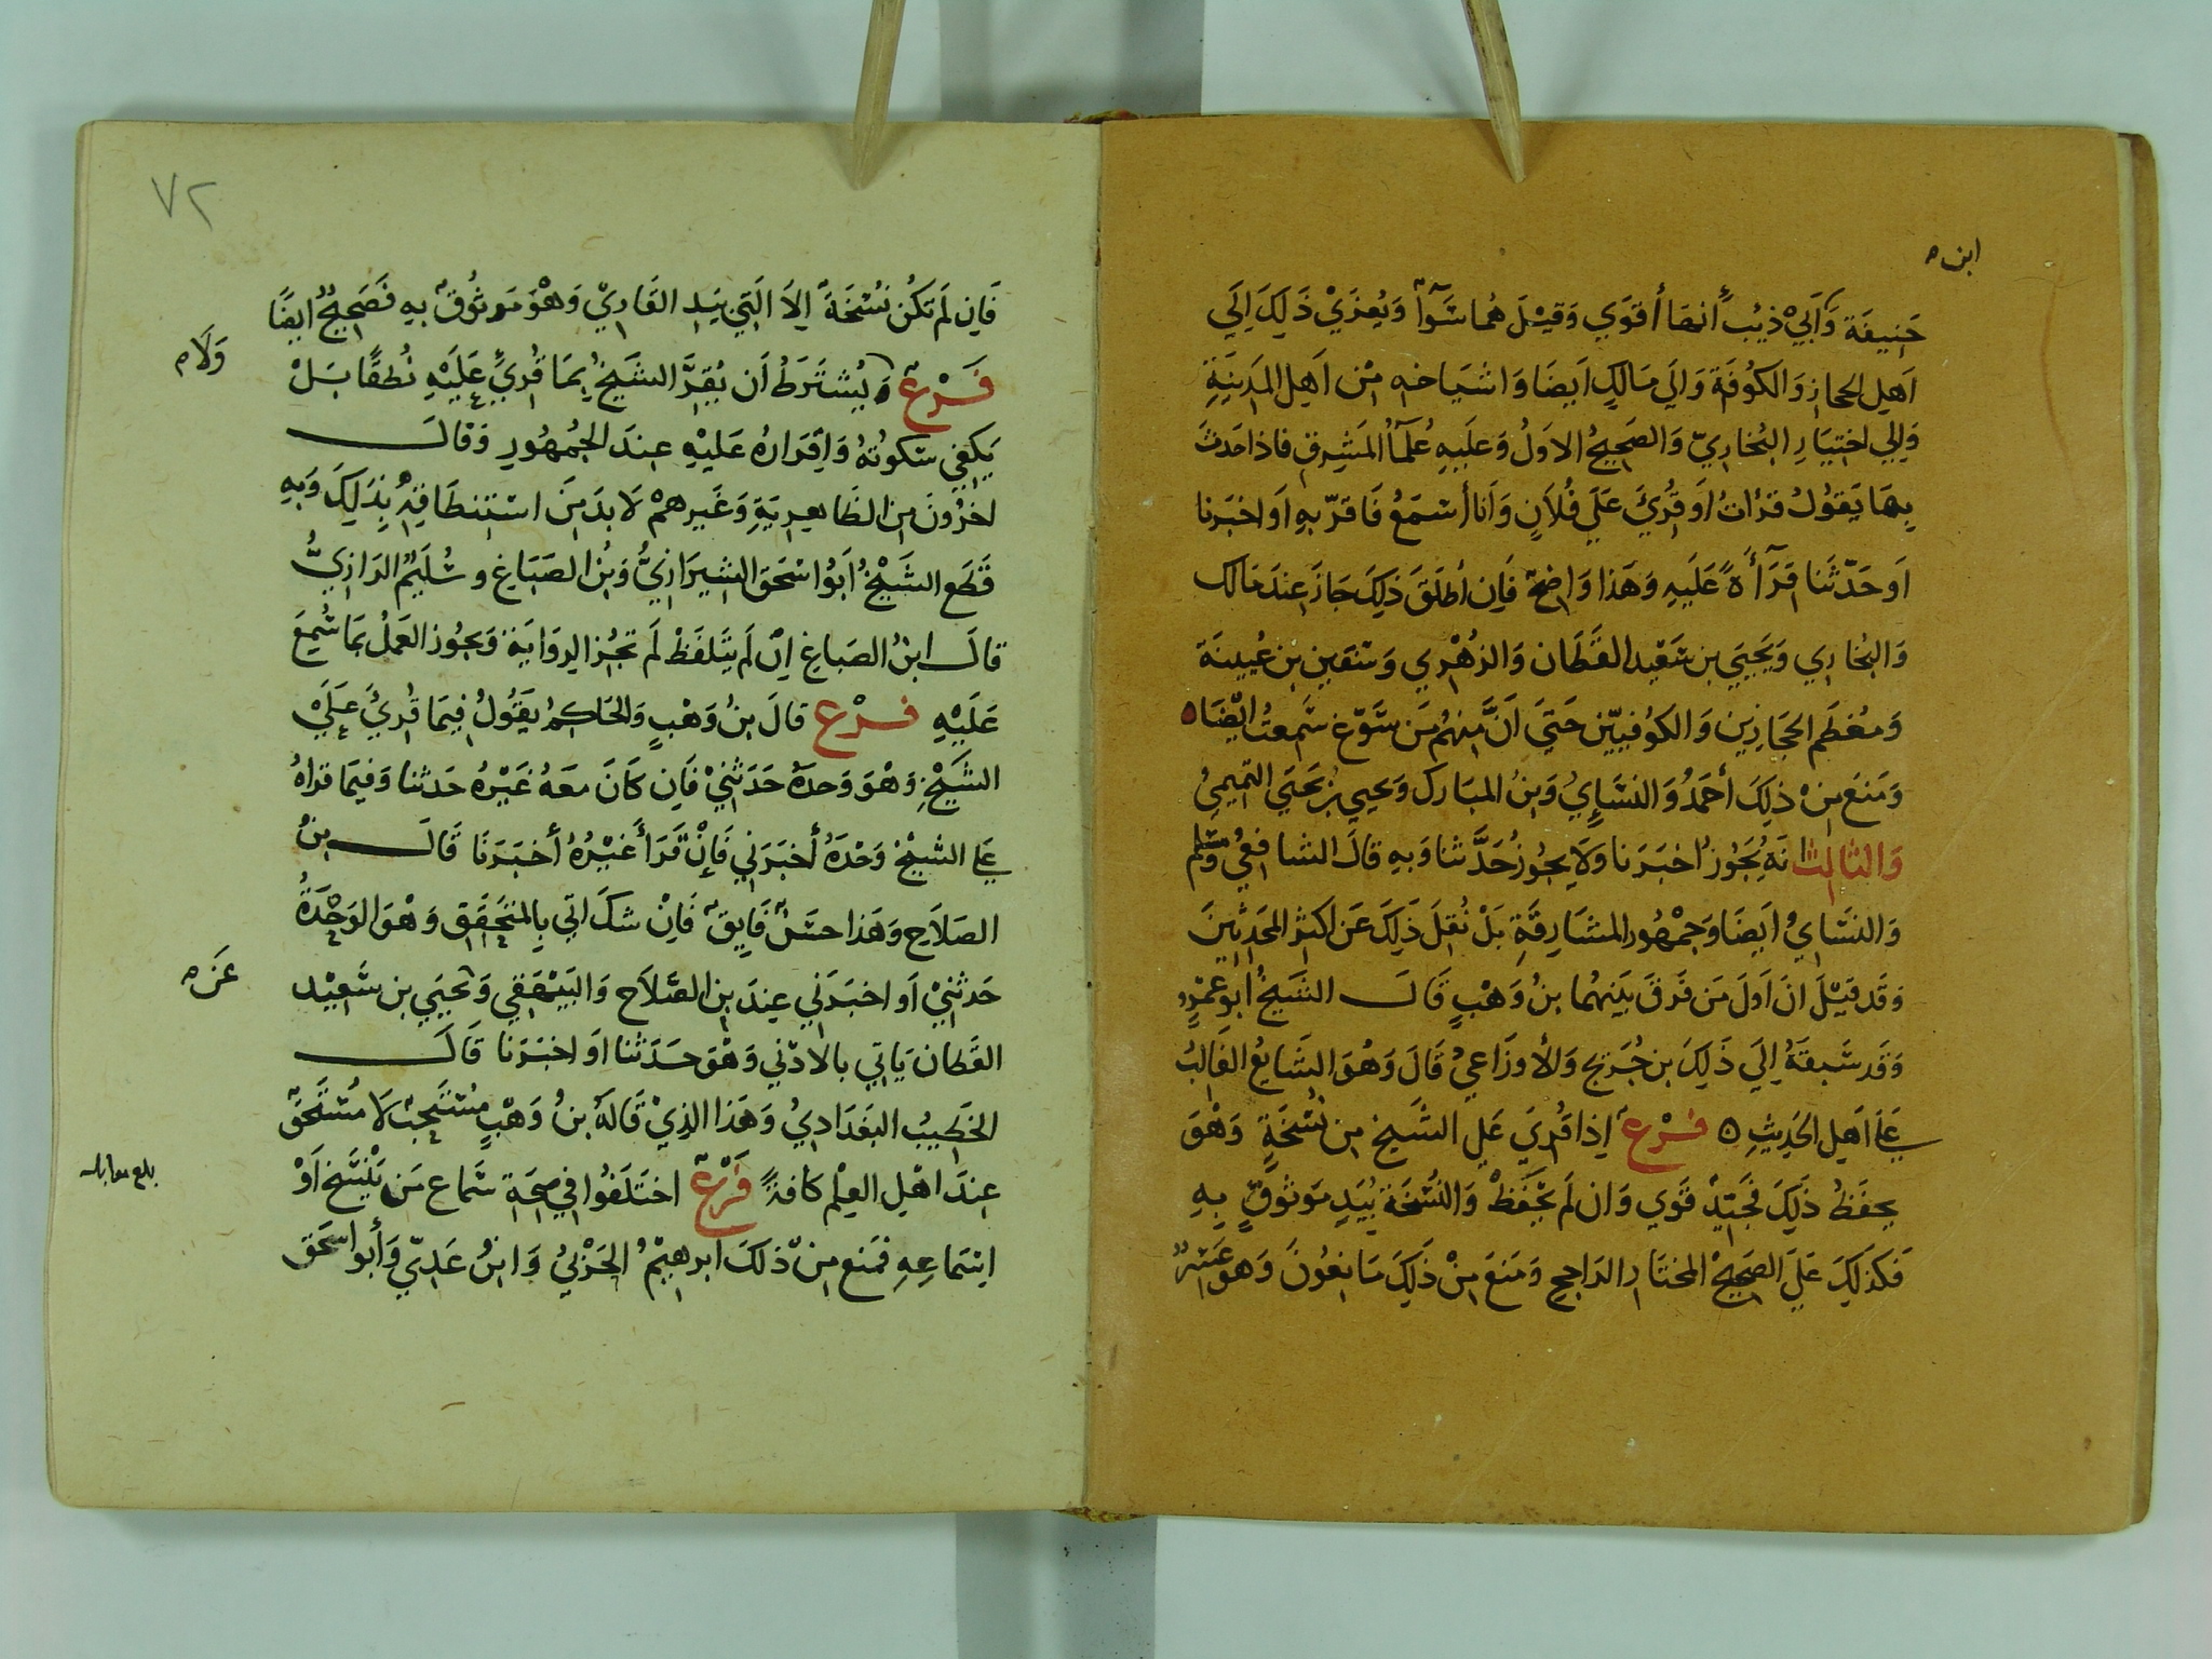 ابن ه
حَنِيفَة وَأَبِيْ ذِئْب أنها أقوَي وَقيْلَ هُما سَوَآ وَيُعزَيْ ذَلِكَ اِلَي
اَهلِ الحجاز وَالكُوفَة وَالَي مَالِكٍ اَيضَا وَاشيَاخه مِنْ اَهلِ المَدِينَةِ
وَالِي اختيَارِ البُخارِيّ وَالصَحِيحُ الاَولُ وَعلَيهِ عُلمَآُ المَشرِقِ فاذا حَدثَ
بِهَا يَقوُلُ قرأتُ اَو قُرِئَ عَلَي فُلاَنٍ وَأنا أسْمَعُ فَاقرّ بهِ اَو اخبَرنا
اَو حَدّثَنا قرَآَأةً عَلَيهِ وَهَذا وَاضح فَاِن أطلَقَ ذلِكَ جَازَ عِندَ مَالك
وَالبُخارِي وَيَحيَي بن سَعْيد القَطَان وَالزهْرِي وَسفين بن عُيينَة
وَمُعظَم الحجَازِين وَالكوُفيّين حَتيَ اَنَّ مِنهُم مَن سَوّغ سَمعتُ ايْضَا ه
وَمَنعَ مِن ذلِكَ أحمَدُ وَالنسَائِيُ وَبنُ المبَارك وَيحيي بن يَحيَي التمِيميُ
وَالثالث انهُ يَجُوزُ اخبَرَنا وَلاَ يجُوز حَدَّثنا وَبهِ قالَ الشافِعيُ وَمسْلم
وَالنسَايُ اَيضَا وَجمْهُور المشَارِقَةِ بَلْ نُقلَ ذَلِكَ عَن اكثر المحَدِثِينَ
وَقَد قيْلَ انَ اَولَ مَن فَرقَ بَينهُما بنُ وَهْبٍ قَالَ الشَيخُ ابو عَمْروٍ
وَقَد سَبقَهُ اِلَي ذَلِكَ بن جُرَيج وَالأوزَاعيُ قَالَ وَهُوَ الشَايعُ الغَالبُ
عَلَي اَهلِ الحَدِيثِ ه فَرْع اِذا قُرِيَ عَلي الشَيخ مِن نُسْخَةٍ وَهْوَ
يحفَظُ ذَلِكَ فَجَيّد قَوي وَان لَم يحْفَظْ وَالنُسْخَة بيَدِ موثوُقٍ بهِ
فَكذلِكَ عَلَي الصَحِيحْ المختَارِ الرَاجِح وَمَنعَ مِنْ ذَلِكَ مَانِعُونَ وَهو عَسِرٌ
٧٢
فَاِن لَم تكُن نسْخَة اِلاَ التَيِ بيَدِ القَارِيْ وَهْوَ مَوثُوق بهِ فصَحِيحٌ ايضًا
فَرْع وَ يُشترَطُ اَن يُقِرَّ الشيخُ بمَا قُرِيَ عَلَيْهِ نُطقًا بَلْ
وَلَا م
يَكفِي سكوُتهُ وَاِقَرارُه عَليْهِ عِندَ الجُمهُورِ وَقالَ
اخروُنَ مِن الظَاهِرِيَةِ وَغَيرهمْ لاَ بدَ مِنَ استنطَاقِهِ بِذَلِكَ وَبهِ
قَطَع الشَيْخُ اَبُو اسْحَق الشيرَازِيُّ وَبنُ الصَبَاغِ وسُلَيْمُ الرَازِيُّ
قالَ ابنُ الصَباغِ اِن لَم يَتَلفَظْ لَم تجُز الرِوَايَة وَيجُوز العَملُ بمَا سُمِعَ
عَلَيْهِ فرْع قالَ بنُ وَهْبٍ وَالحَاكِمُ يقَوُلُ فيمَا قُرِيَ عَلَيَ
الشَيْخِ وَهْوَ وَحدهُ حَدَثنِيْ فَاِن كَانَ معَهُ غَيْرُه حَدثنا وَفيمَا قراهُ
عَلي الشيخْ وَحْدَهُ أخبَرَنِي فَإنْ قَرَأَ غَيْرُهُ أخبَرَنَا قَالَ بنُ
الصَلاَحِ وَهَذا حسَنٌ فَايق فَانْ شكَ اتي بِالمتحَقَق وَهْوَ الوَحْدَةُ
حَدثنِيْ اَو اخبَرَنِي عِندَ بن الصَلاَح وَالبَيْهَقي وَ يحيَي بن سَعِيْد
عَن م
القَطان يَاتِي بالادْني وَهْوَ حَدَثنا اوَ اخبَرَنا قَالَ
الخَطيبُ البَغدَادِيُ وَهَذا الذِيْ قَالهُ بنُ وَهْبٍ مُستَحبٌ لاَ مسْتحَق
عِندَ اهْلِ العِلْمِ كافةً فَرْع اختَلفوُا فِي صِحَةِ سَماع مَن يَنْسَخ اَوْ
بلغ مقابله
اِسْمَاعهِ فمَنع مِن ذلكَ ابرهِيمُ الحَرْبيُ وَابنُ عَدِيّ وَأبو اسْحَق